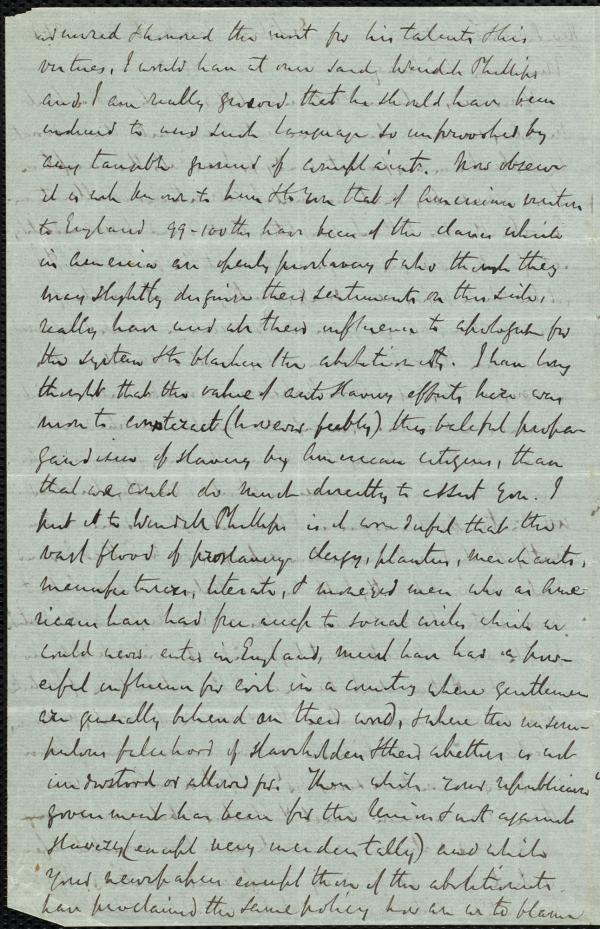 admired & honored the most for his talents & his
virtues, I would have at once said, Wendell Phillips
and I am really grieved that he should have been
induced to use such language so unprovoked by
any tangible ground of complaint. Now observe
it is well known to him & to you that of American visitors
to England 99-100ths have been of the classes which
in America are openly proslavery & who though they
may slightly disguise their sentiments on this side,
really have used all their influence to apologise for
the system & to blacken the abolitionists. I have long
thought that the value of anti slavery efforts here was
more to counteract (however feebly) this baleful propa-
gandism of slavery by American citizens, than
that we could do much directly to assist you. I
put it to Wendell Phillips is it wonderful that the
vast flood of proslavery clergy, planters, merchants,
manufacturers, literati, & moneyed men who as Ame-
ricans have had free access to social circles which we
could never enter in England, must have had a pow-
erful influence for evil in a country where gentlemen
are generally believed on their word, & where the unscru-
pulous falsehood of slaveholders & their abettors is not
understood or allowed for. Then while your republican
government has been for the Union & not against
slavery (except very incidentally) and while
your newspapers except those of the abolitionists
have proclaimed the same policy how are we to blame